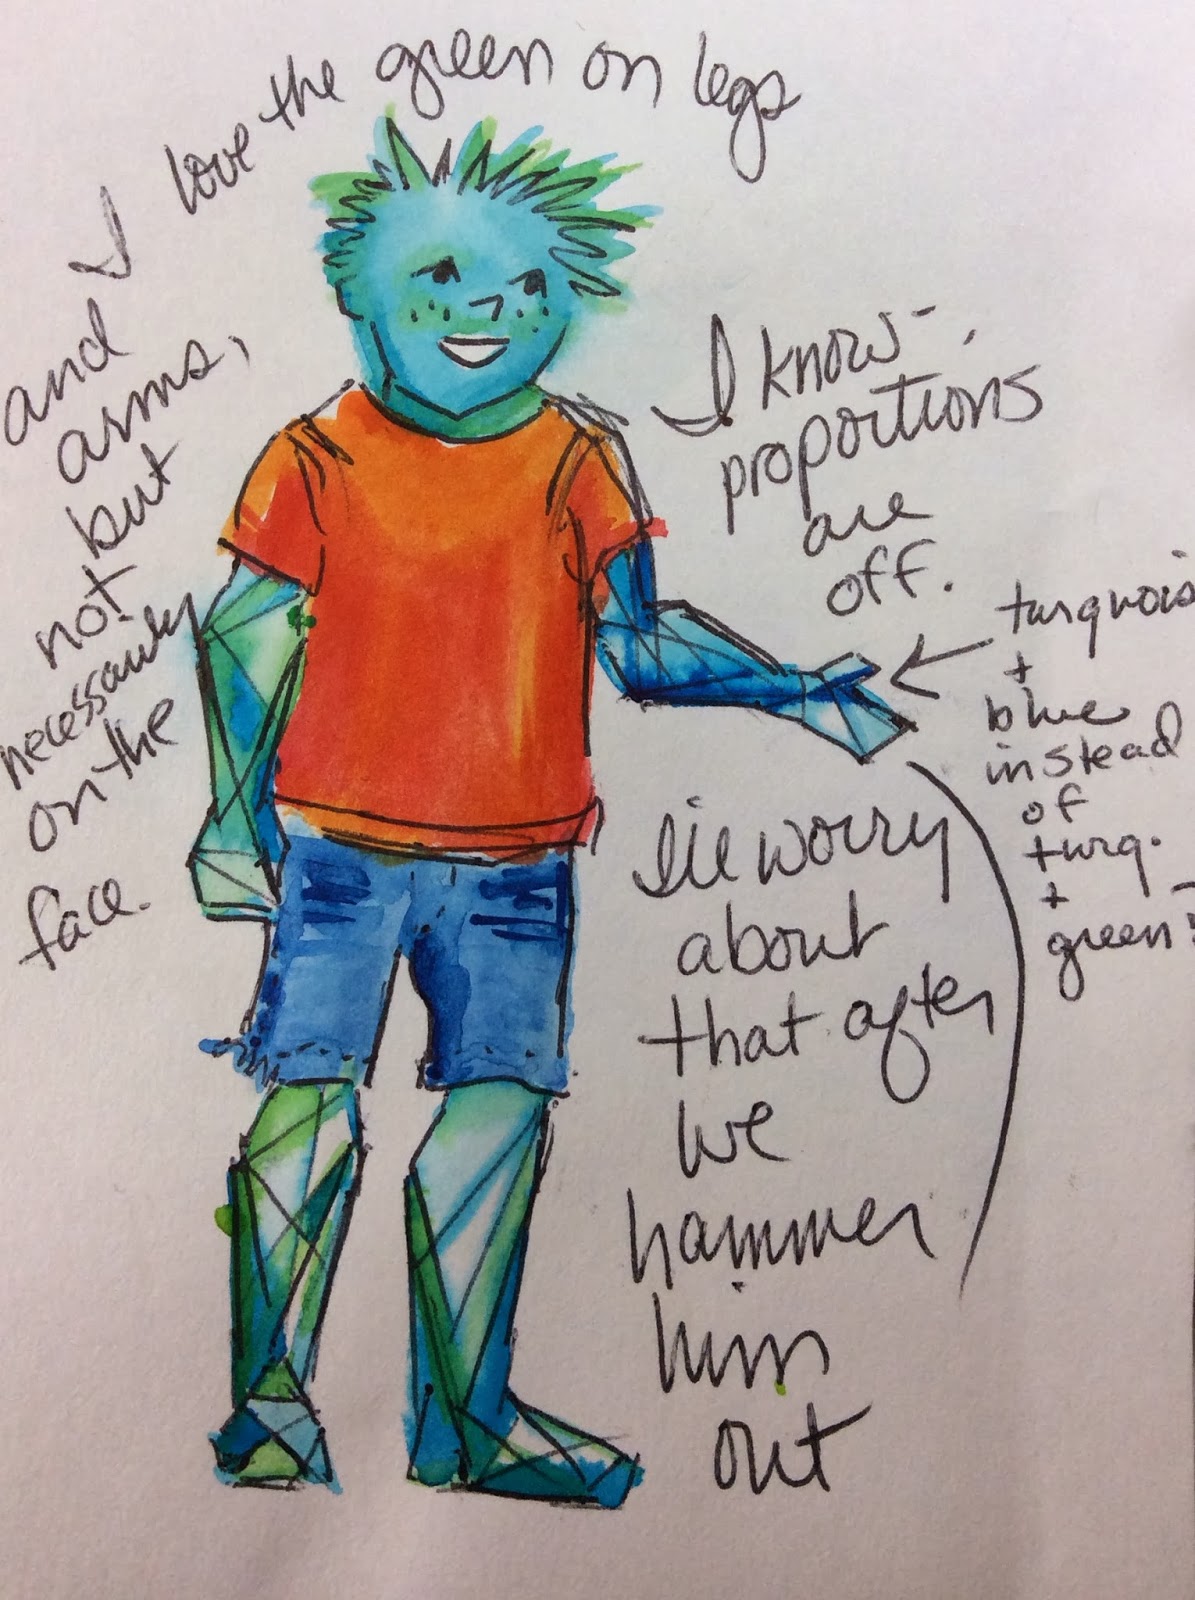 I love the green on legs
and
arms,
but
not
necessarily
on the
face.
I know -
proportions
are
off.
I'll worry
about
that after
we
hammer
him
out
turquois
+
blue
instead
of
turq.
+
green?